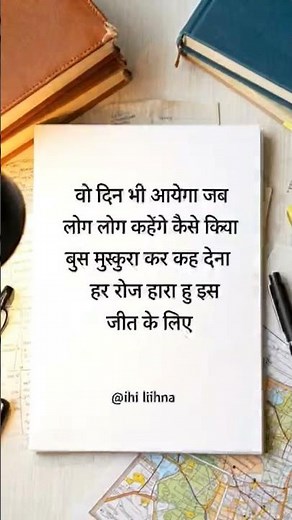 वो दिन भी आयेगा जब
लोग लोग कहेंगे कैसे किया
बुस मुस्कुरा कर कह देना
हर रोज हारा हु इस
जीत के लिए
@ihi liihna